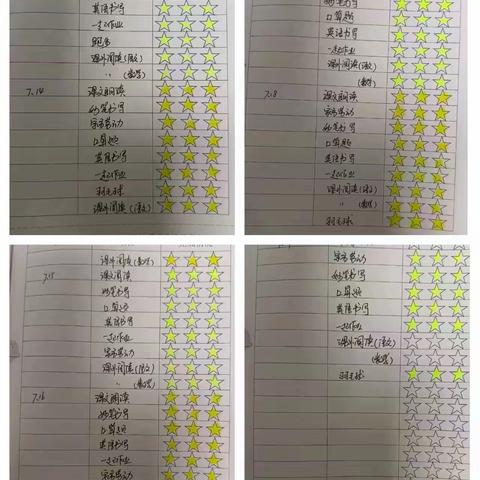 英语书写
一起作业
跑步
课外阅读(语文)
〃 (数学)
7.14 课文朗读
妙笔书写
家务劳动
口算题
英语书写
一起作业
羽毛球
课外阅读(语文)
妙笔书写
口算题
英语书写
一起作业
课外阅读(语文)
(数学)
7.18 课文朗读
家务劳动
妙笔书写
口算题
英语书写
一起作业
课外阅读(语文)
〃 (数学)
羽毛球
课外阅读(数学)
7.15 课文朗读
妙笔书写
口算题
英语书写
一起作业
家务劳动
课外阅读(语文)
〃 (数学)
7.16 课文朗读
妙笔书写
口算题
英语书写
一起作业
家务劳动
家务劳动
妙笔书写
口算题
英语书写
一起作业
课外阅读(语文)
(数学)
羽毛球